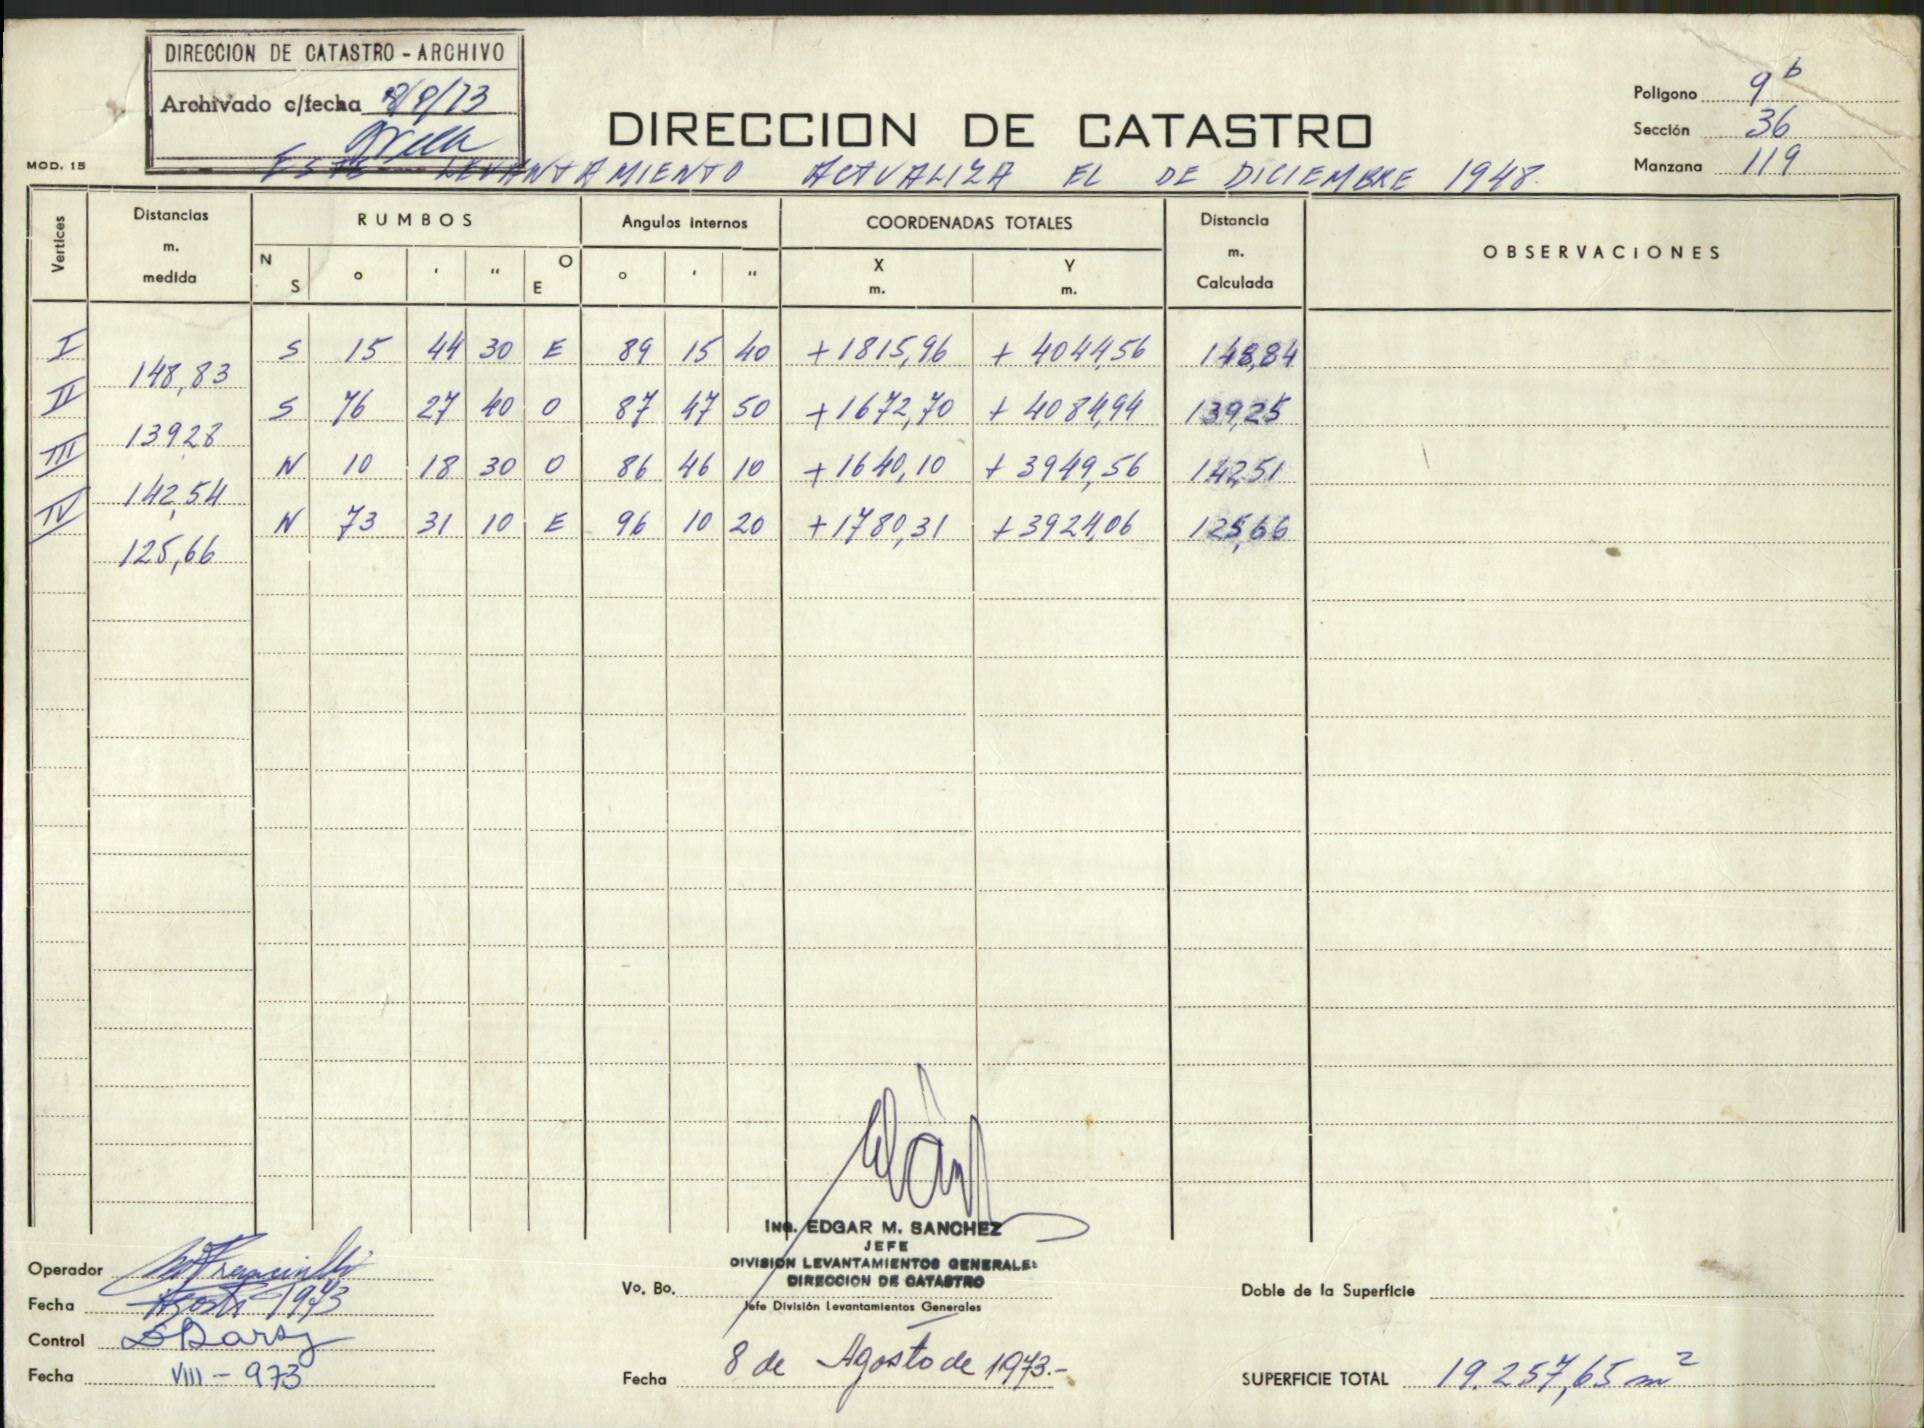 DIRECCION DE CATASTRO - ARCHIVO
Archivado c/fecha 8/8/73
DIRECCION DE CATASTRO
Polígono 9 b
Sección 36
Manzana 119
MOD. 15
ESTE LEVANTAMIENTO ACTUALIZA EL DE DICIEMBRE 1948.
Vertices Distancias m. medida RUMBOS Angulos internos COORDENADAS TOTALES Distancia m. Calculada OBSERVACIONES
N S ° ' " O E ° ' " X m. Y m.
I S 15 44 30 E 89 15 40 +1815,96 +4044,56 148,84
148,83
II S 76 27 40 O 87 47 50 +1672,70 +4084,94 139,25
139,28
III N 10 18 30 O 86 46 10 +1640,10 +3949,56 142,51
142,54
IV N 73 31 10 E 96 10 20 +1780,31 +3924,06 125,66
125,66
ING. EDGAR M. SANCHEZ
JEFE
DIVISION LEVANTAMIENTOS GENERALES
DIRECCION DE CATASTRO
Operador
Fecha Agosto 1973
Control
Fecha VIII - 973
Vo. Bo.
Jefe División Levantamientos Generales
Fecha 8 de Agosto de 1973.-
Doble de la Superficie
SUPERFICIE TOTAL 19.257,65 m²